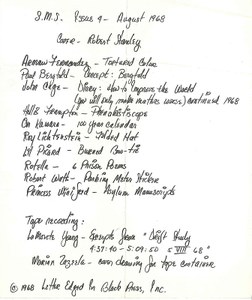 S.M.S. Issue 4 - August 1968
Cover - Robert Stanley
Arman Fernandez - Tortured Color
Paul Bergtold - Excerpt: Bergtold
John Cage - Diary: How to Improve the World
(you will only make matters worse) continued 1968
Hollis Frampton - Phenakistiscope
On Kawara - 100 year calendar
Roy Lichtenstein - Folded Hat
Lil Picard - Burned Bow-tie
Rotella - 6 Prison Poems
Robert Watts - Parking Meter Stickers
Princess Winifred - Asylum Manuscripts
Tape recording:
LaMonte Young - Excerpts from "Drift Study
4:37:40 - 5:09:50 5 VIII 68"
Marian Zazeela - cover drawing for tape container
© 1968 Letter Edged In Black Press, Inc.